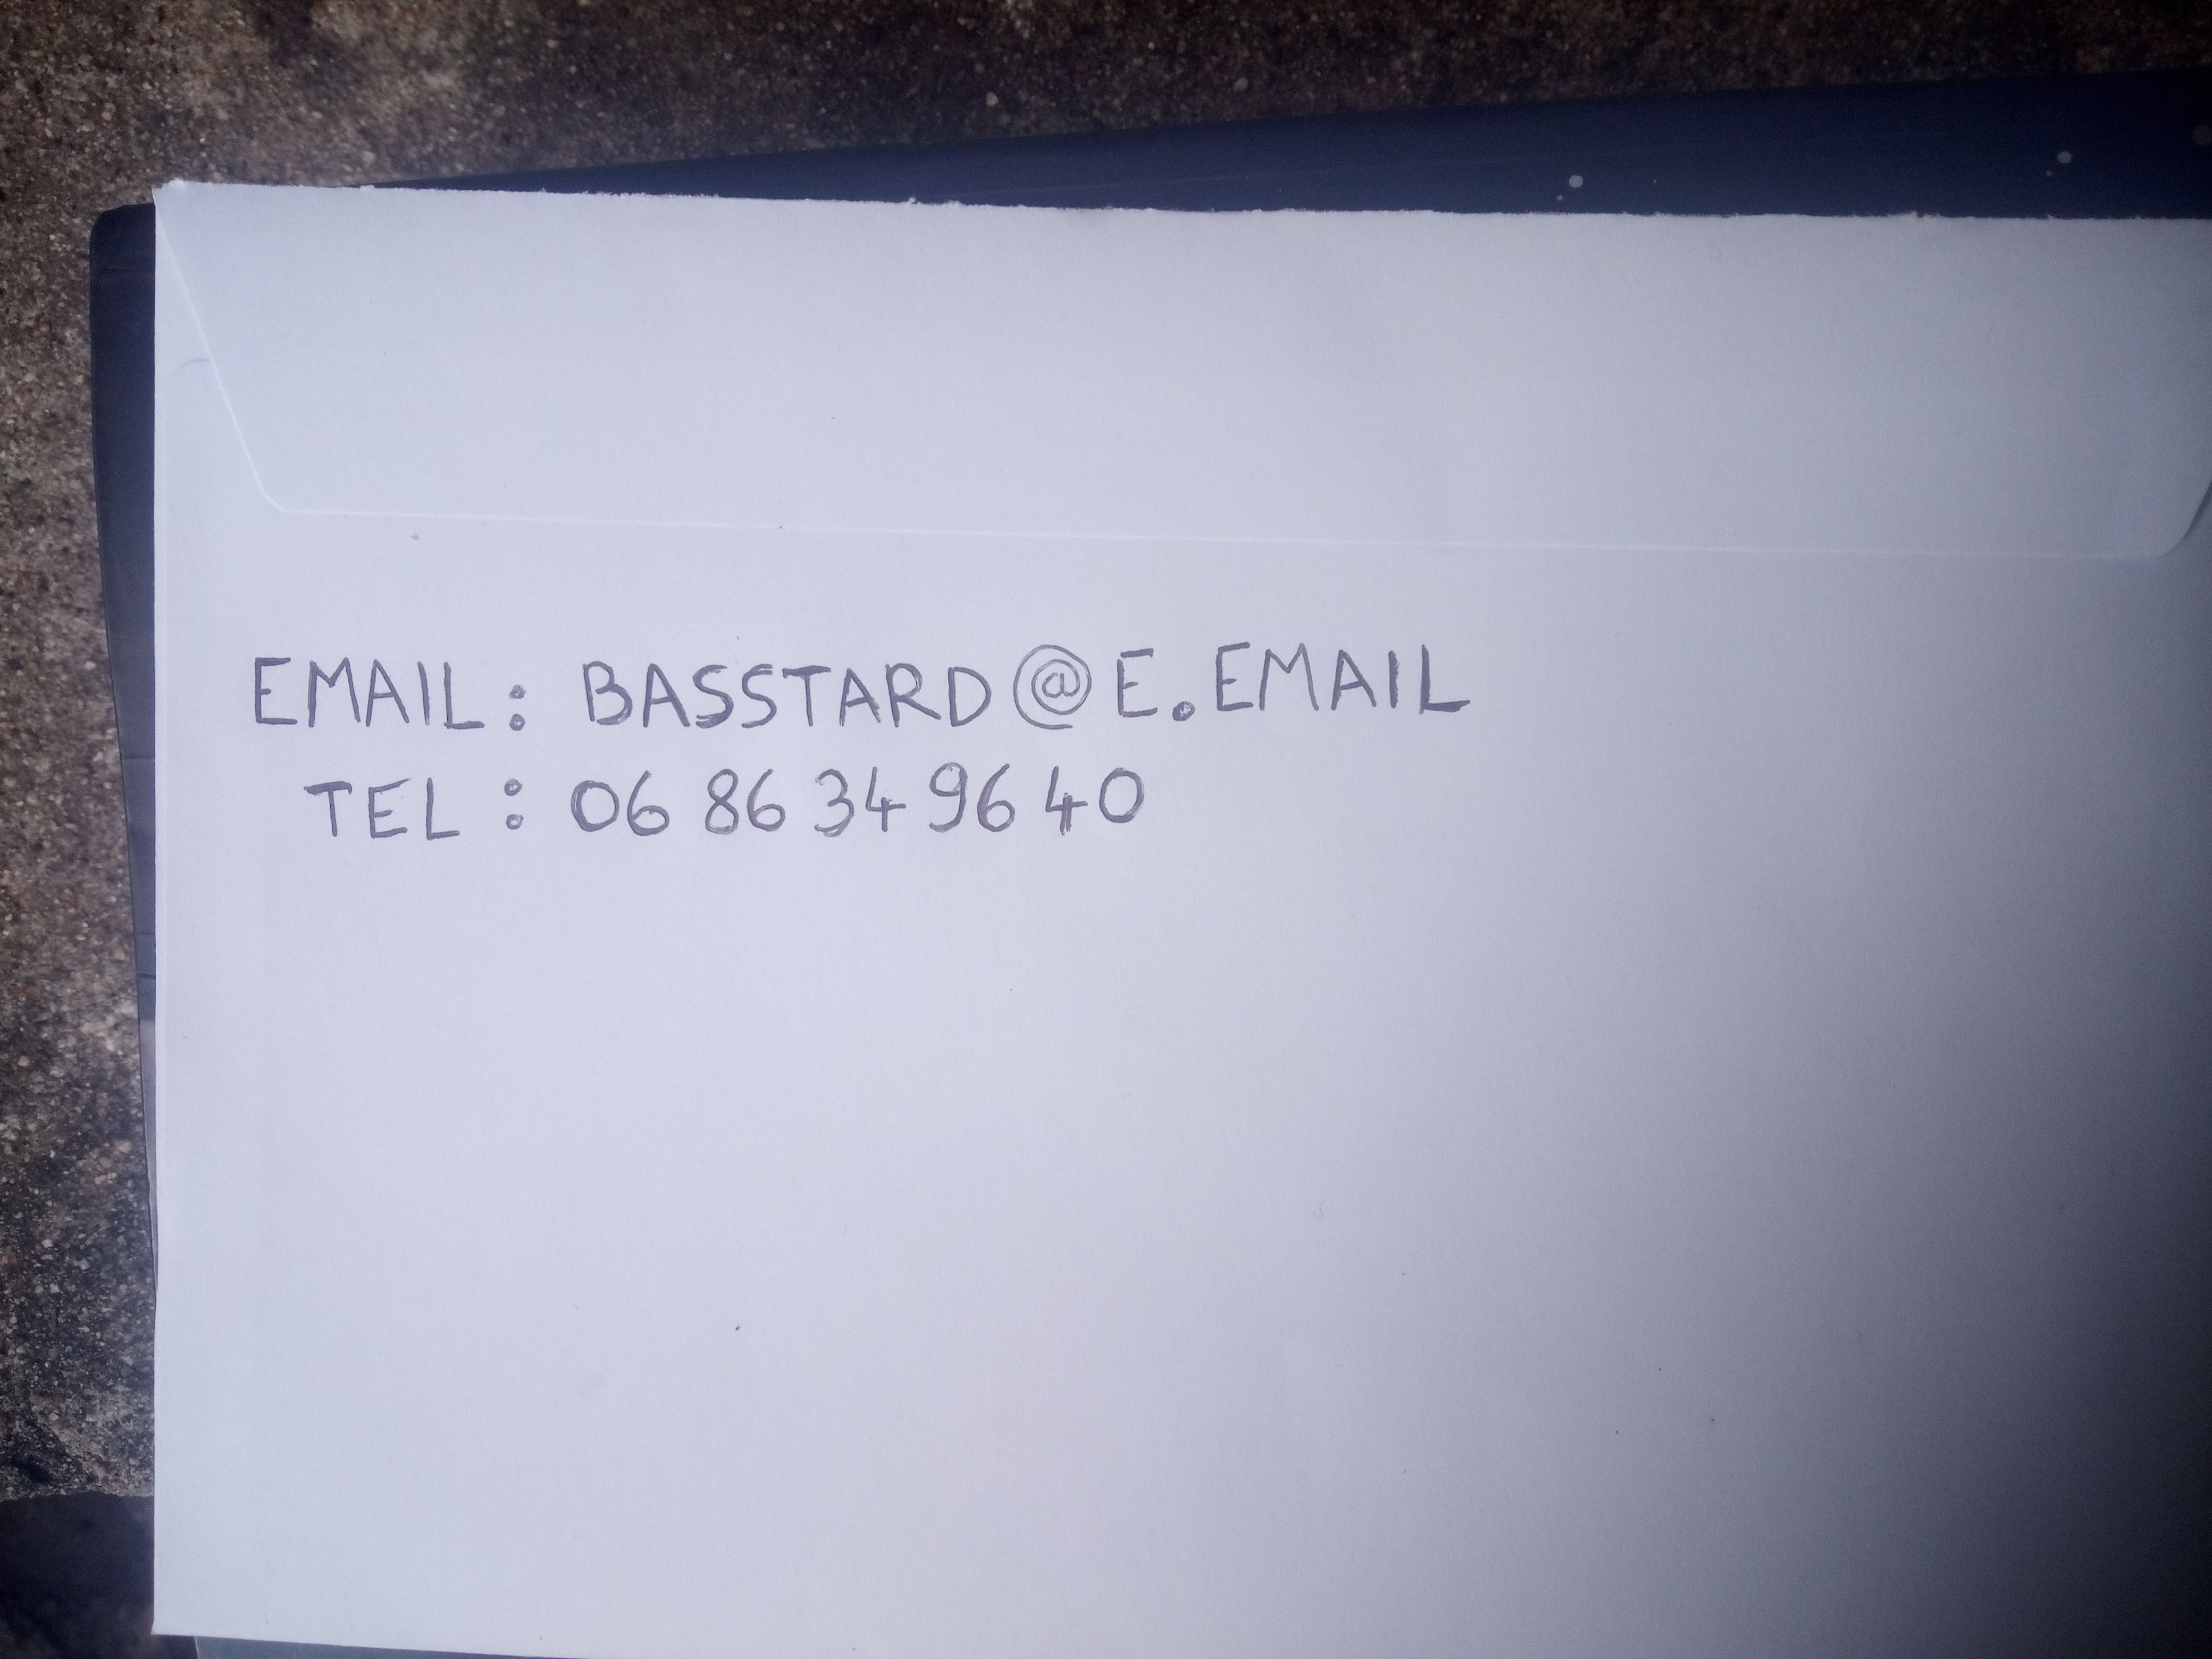 EMAIL: BASSTARD@E.EMAIL
TEL : 06 86 34 96 40